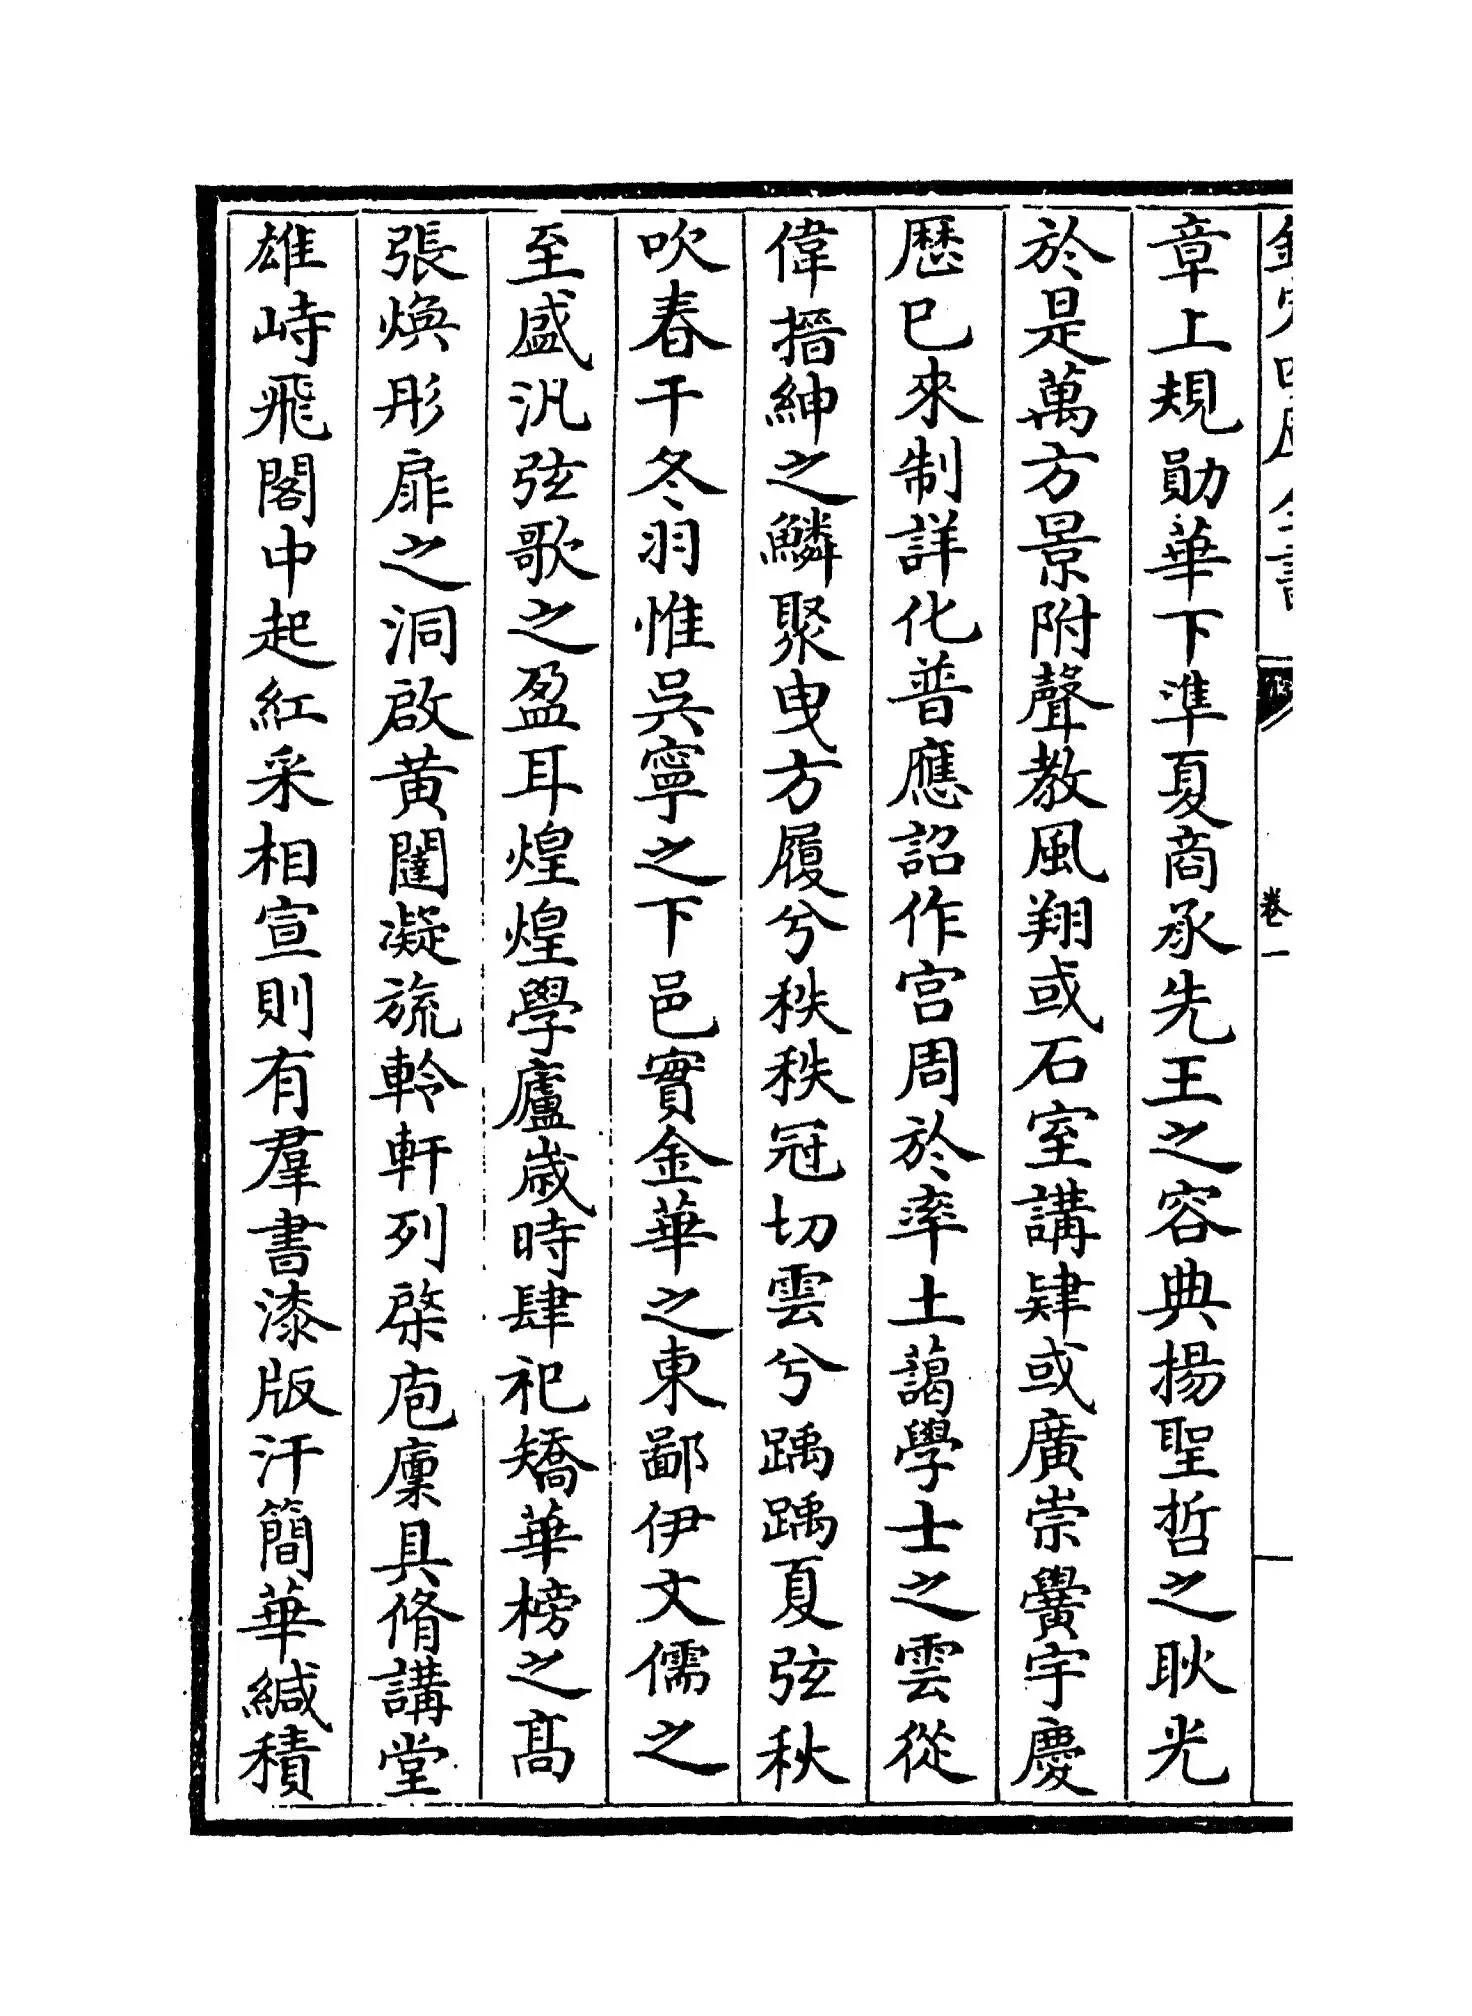 章上規勛華下準夏商承先王之容典揚聖哲之耿光
於是萬方景附聲教風翔或石室講肄或廣崇黌宇慶
歴已來制詳化普應詔作宫周於率土藹學士之雲從
偉搢紳之鱗聚曳方履兮秩秩冠切雲兮踽踽夏弦秋
吹春干冬羽惟吳寧之下邑實金華之東鄙伊文儒之
至盛汎弦歌之盈耳煌煌學廬歲時肆祀矯華榜之髙
張煥彤扉之洞啟黄闥凝旒軨軒列棨庖廩具脩講堂
雄峙飛閣中起紅采相宣則有羣書漆版汗簡華緘積
卷一